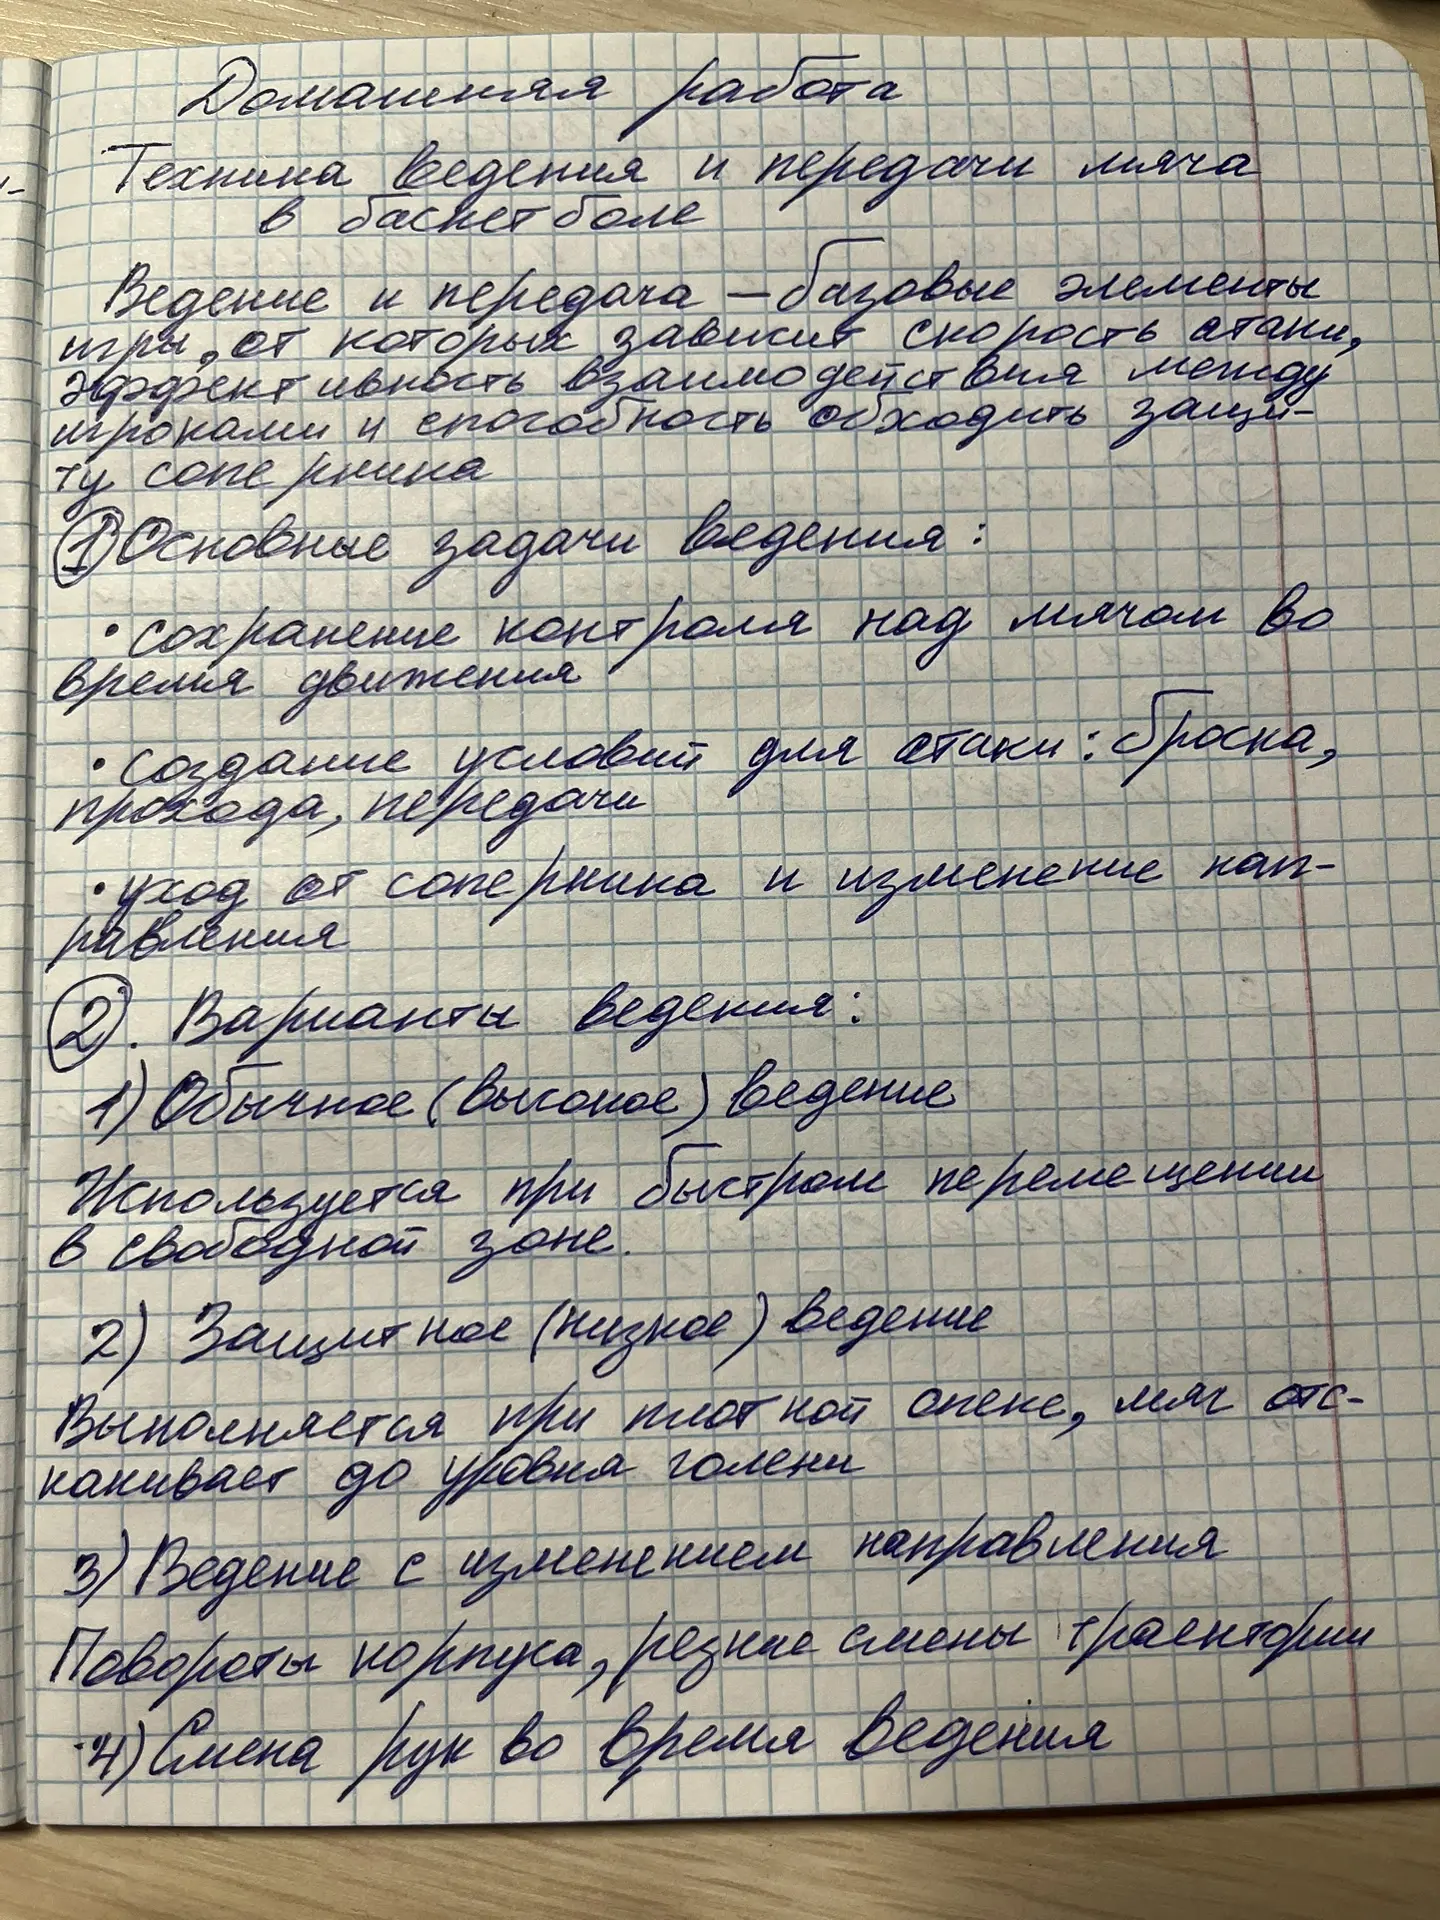 Домашняя работа
Техника ведения и передачи мяча
в баскетболе
Ведение и передача – базовые элементы
игры, от которых зависит скорость атаки,
эффективность взаимодействия между
игроками и способность обходить защи-
ту соперника
1 Основные задачи ведения:
• сохранение контроля над мячом во
время движения
• создание условий для атаки: броска,
прохода, передачи
• уход от соперника и изменение нап-
равления
2. Варианты ведения:
1) Обычное (высокое) ведение
Используется при быстром перемещении
в свободной зоне.
2) Защитное (низкое) ведение
Выполняется при плотной опеке, мяч отс-
какивает до уровня голени
3) Ведение с изменением направления
Повороты корпуса, резкие смены траектории
4) Смена рук во время ведения